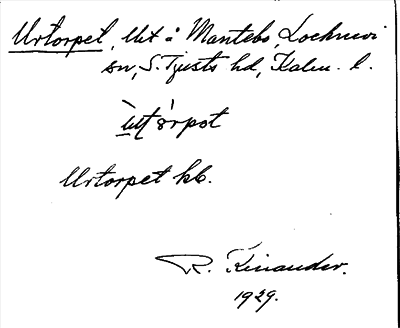 Urtorpet, lht i Mantebo, Lochnevi
sn, S. Tjusts hd, Kalm. l.
Urtorpet kb.
R. Kinander.
1929.